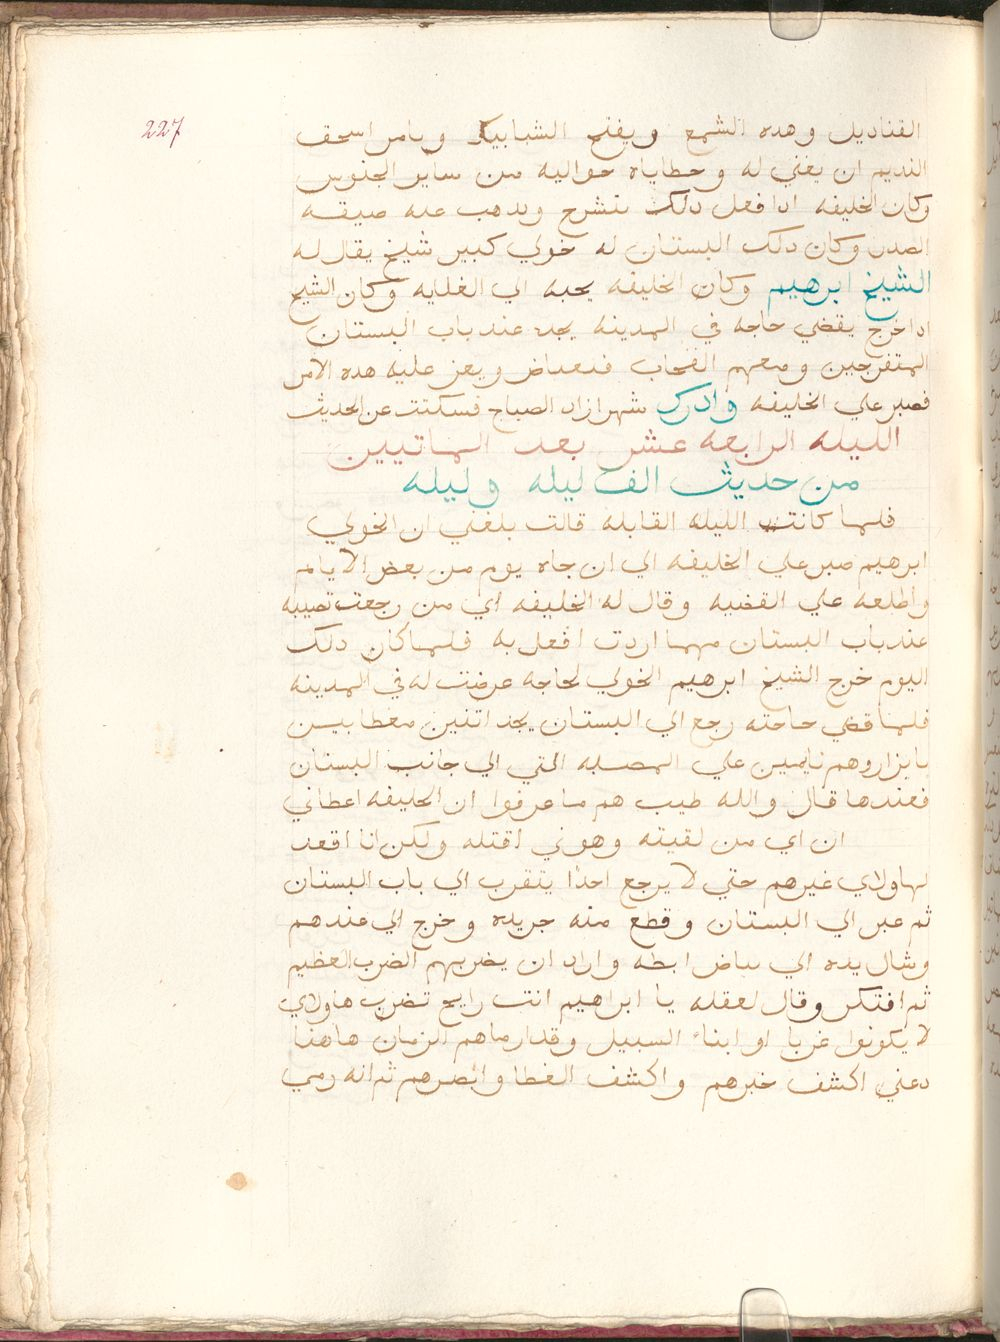 227
القناديل وهده الشمع ويفتح الشبابيك ويامر اسحق
النديم ان يغني له وحطاياه حواليه من ساير الجنوس
وكان الخليفه ادا فعل دلك ينشرح ويدهب عنه ضيقه
الصدر وكان دلك البستان له خولي كبير شيخ يقال له
الشيخ ابرهيم وكان الخليفه يحبه الي الغلايه وكان الشيخ
ادا خرج يقضي حاجه في المدينه يجد عند باب البستان
المتفرجين ومعهم القحاب فيعتاض ويعز عليه هده الامر
فصبر علي الخليفه وادرك شهرازاد الصباح فسكتت عن الحديث
الليله الرابعه عشر بعد الماتيين
من حديث الف ليله وليله
فلما كانت الليله القابله قالت بلغني ان الخولي
ابرهيم صبر علي الخليفه الي ان جاه يوم من بعض الايام
واطلعه علي القضيه وقال له الخليفه اي من رجعت تصيبه
عند باب البستان مهما اردت افعل به فلما كان دلك
اليوم خرج الشيخ ابرهيم الخولي لحاجه عرضت له في المدينه
فلما قضي حاجته رجع الي البستان يجد اتنين مغطايين
بايزار وهم نايمين علي المصطبه التي الي جانب البستان
فعندها قال والله طيب هم ما عرفوا ان الخليفه اعطاني
ان اي من لقيته وهوني اقتله ولكن انا اقعد
لهاولاي غيرهم حتي لا يرجع احدًا يتقرب الي باب البستان
ثم عبر الي البستان وقطع منه جريده وخرج الي عندهم
وشال يده الي بياض ابطه واراد ان يضربهم الضرب العظيم
ثم افتكر وقال لعقله يا ابراهيم انت رايح تضرب هاولاي
لا يكونوا غربا او ابناء السبيل وقد ارماهم الزمان هاهنا
دعني اكشف خبرهم واكشف الغطا وابصرهم ثم انه رمي